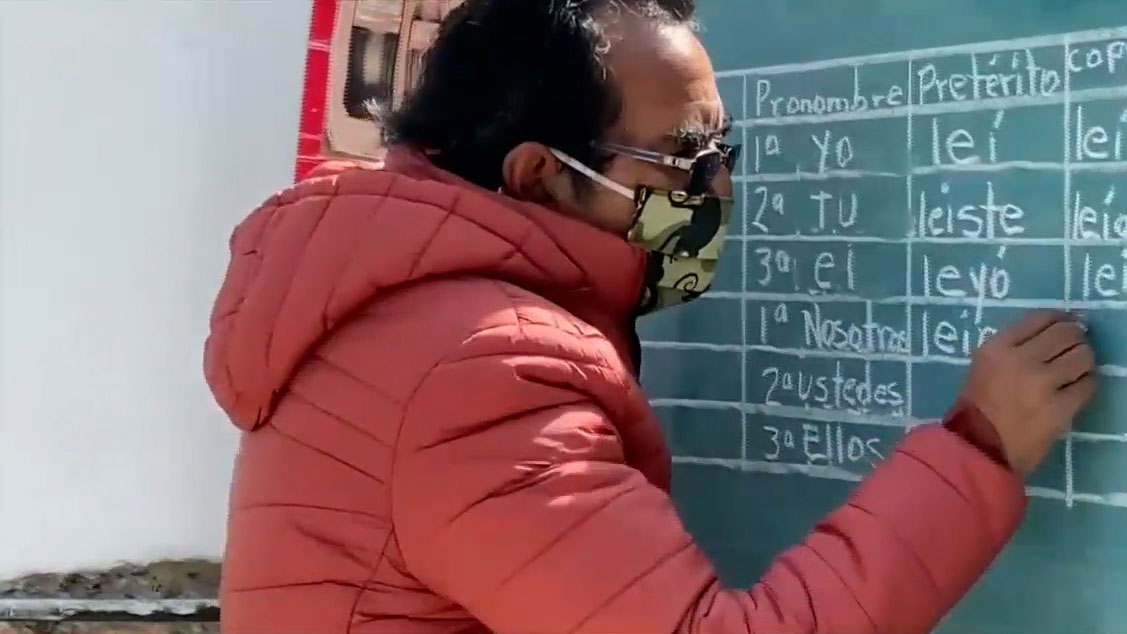 Pronombre Pretérito cop
1ª Yo leí leí
2ª TU leiste leía
3ª el leyó leí
1ª Nosotros leí
2ª ustedes
3ª Ellos